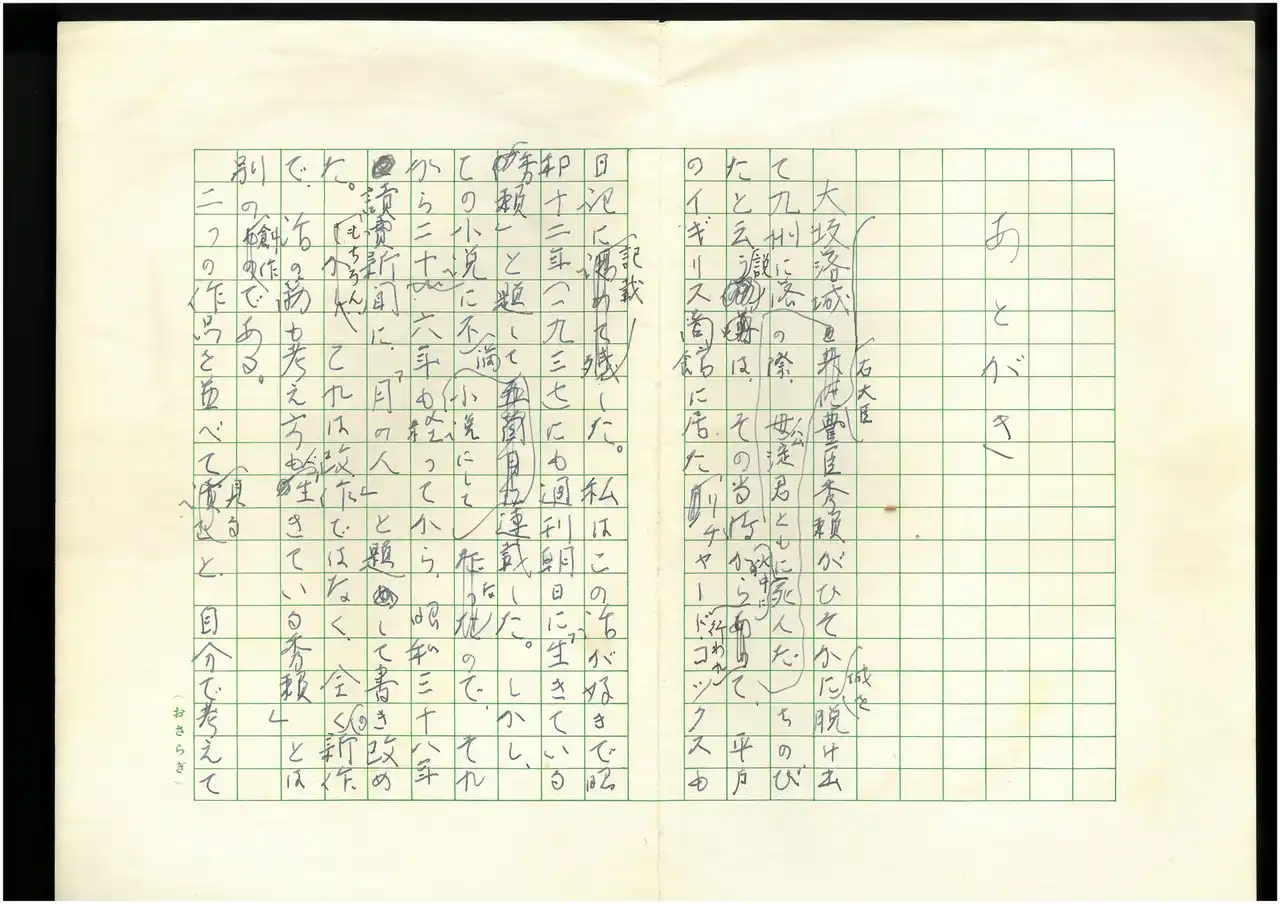 あとがき
大坂落城の際、右大臣豊臣秀頼がひそかに城を脱け出
て九州に落ちのび
たと云う説は、その当時から行われて、平戸
のイギリス商館に居たリチャード・コックスも
日記に記載した。私はこの話が好きで昭
和十二年(一九三七)にも週刊朝日に「生きている
秀頼」と題して連載した。しかし、
その小説に不満なので、それ
から二十六年も経ってから、昭和三十八年
読賣新聞に、「月の人」と題して書き改め
た。もちろん、これは改作ではなく、全くの新作
で、話の筋も考え方も「生きている秀頼」とは
別の創作である。
二つの作品を並べて見ると、自分で考えて
(おさらぎ)